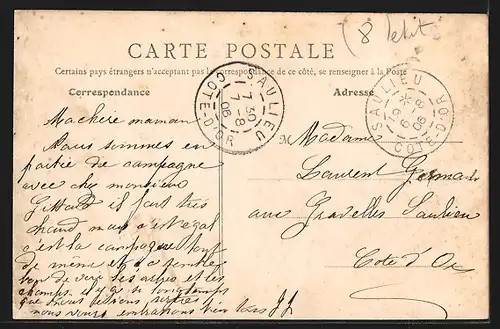 (8 Petit
CARTE POSTALE
Certains pays étrangers n'acceptant pas la correspondance de ce côté, se renseigner à la Poste
Correspondance
Adresse
SAULIEU
7 30
7 - 8
06
COTE-D'OR
SAULIEU
6 - 8
06
COTE-D'OR
Ma chère maman
Nous sommes en
partie de campagne
avec chez monsieur
il fait très
chaud mais c'est egal
c'est la campagne tout
de même
bon de voir les et les
champs il y a longtemps
que nous
nous vous embrassons bien tous JJ
Madame
Laurent Germain
aux Gravelles Saulieu
Cote d'Or